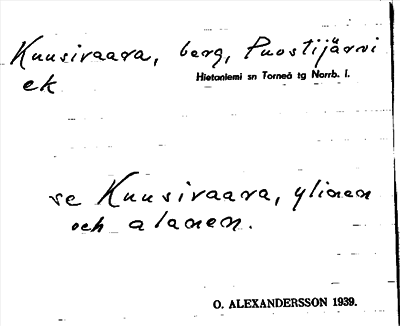 Kuusivaara, berg, Puostijärvi
ek
Hietaniemi sn Torneå tg Norrb. l.
se Kuusivaara, ylinen
och alanen.
O. ALEXANDERSSON 1939.